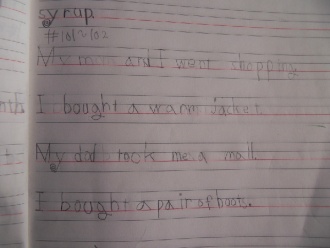 syrup.
#101~102
My mom and I went shopping
I bought a warm jacket.
My dad took me a mall.
I bought a pair of boots.